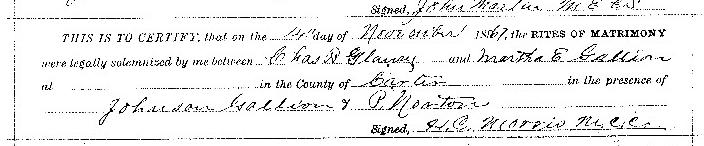 Signed, John Martin M E
THIS IS TO CERTIFY, that on the 4th day of November 1867, the RITES OF MATRIMONY
were legally solemnized by me between Chas D Glancy and Martha E Gallion
at in the County of Carter in the presence of
Johnson Gallion & P. Norton
Signed, H. C. Morris M.C.C.